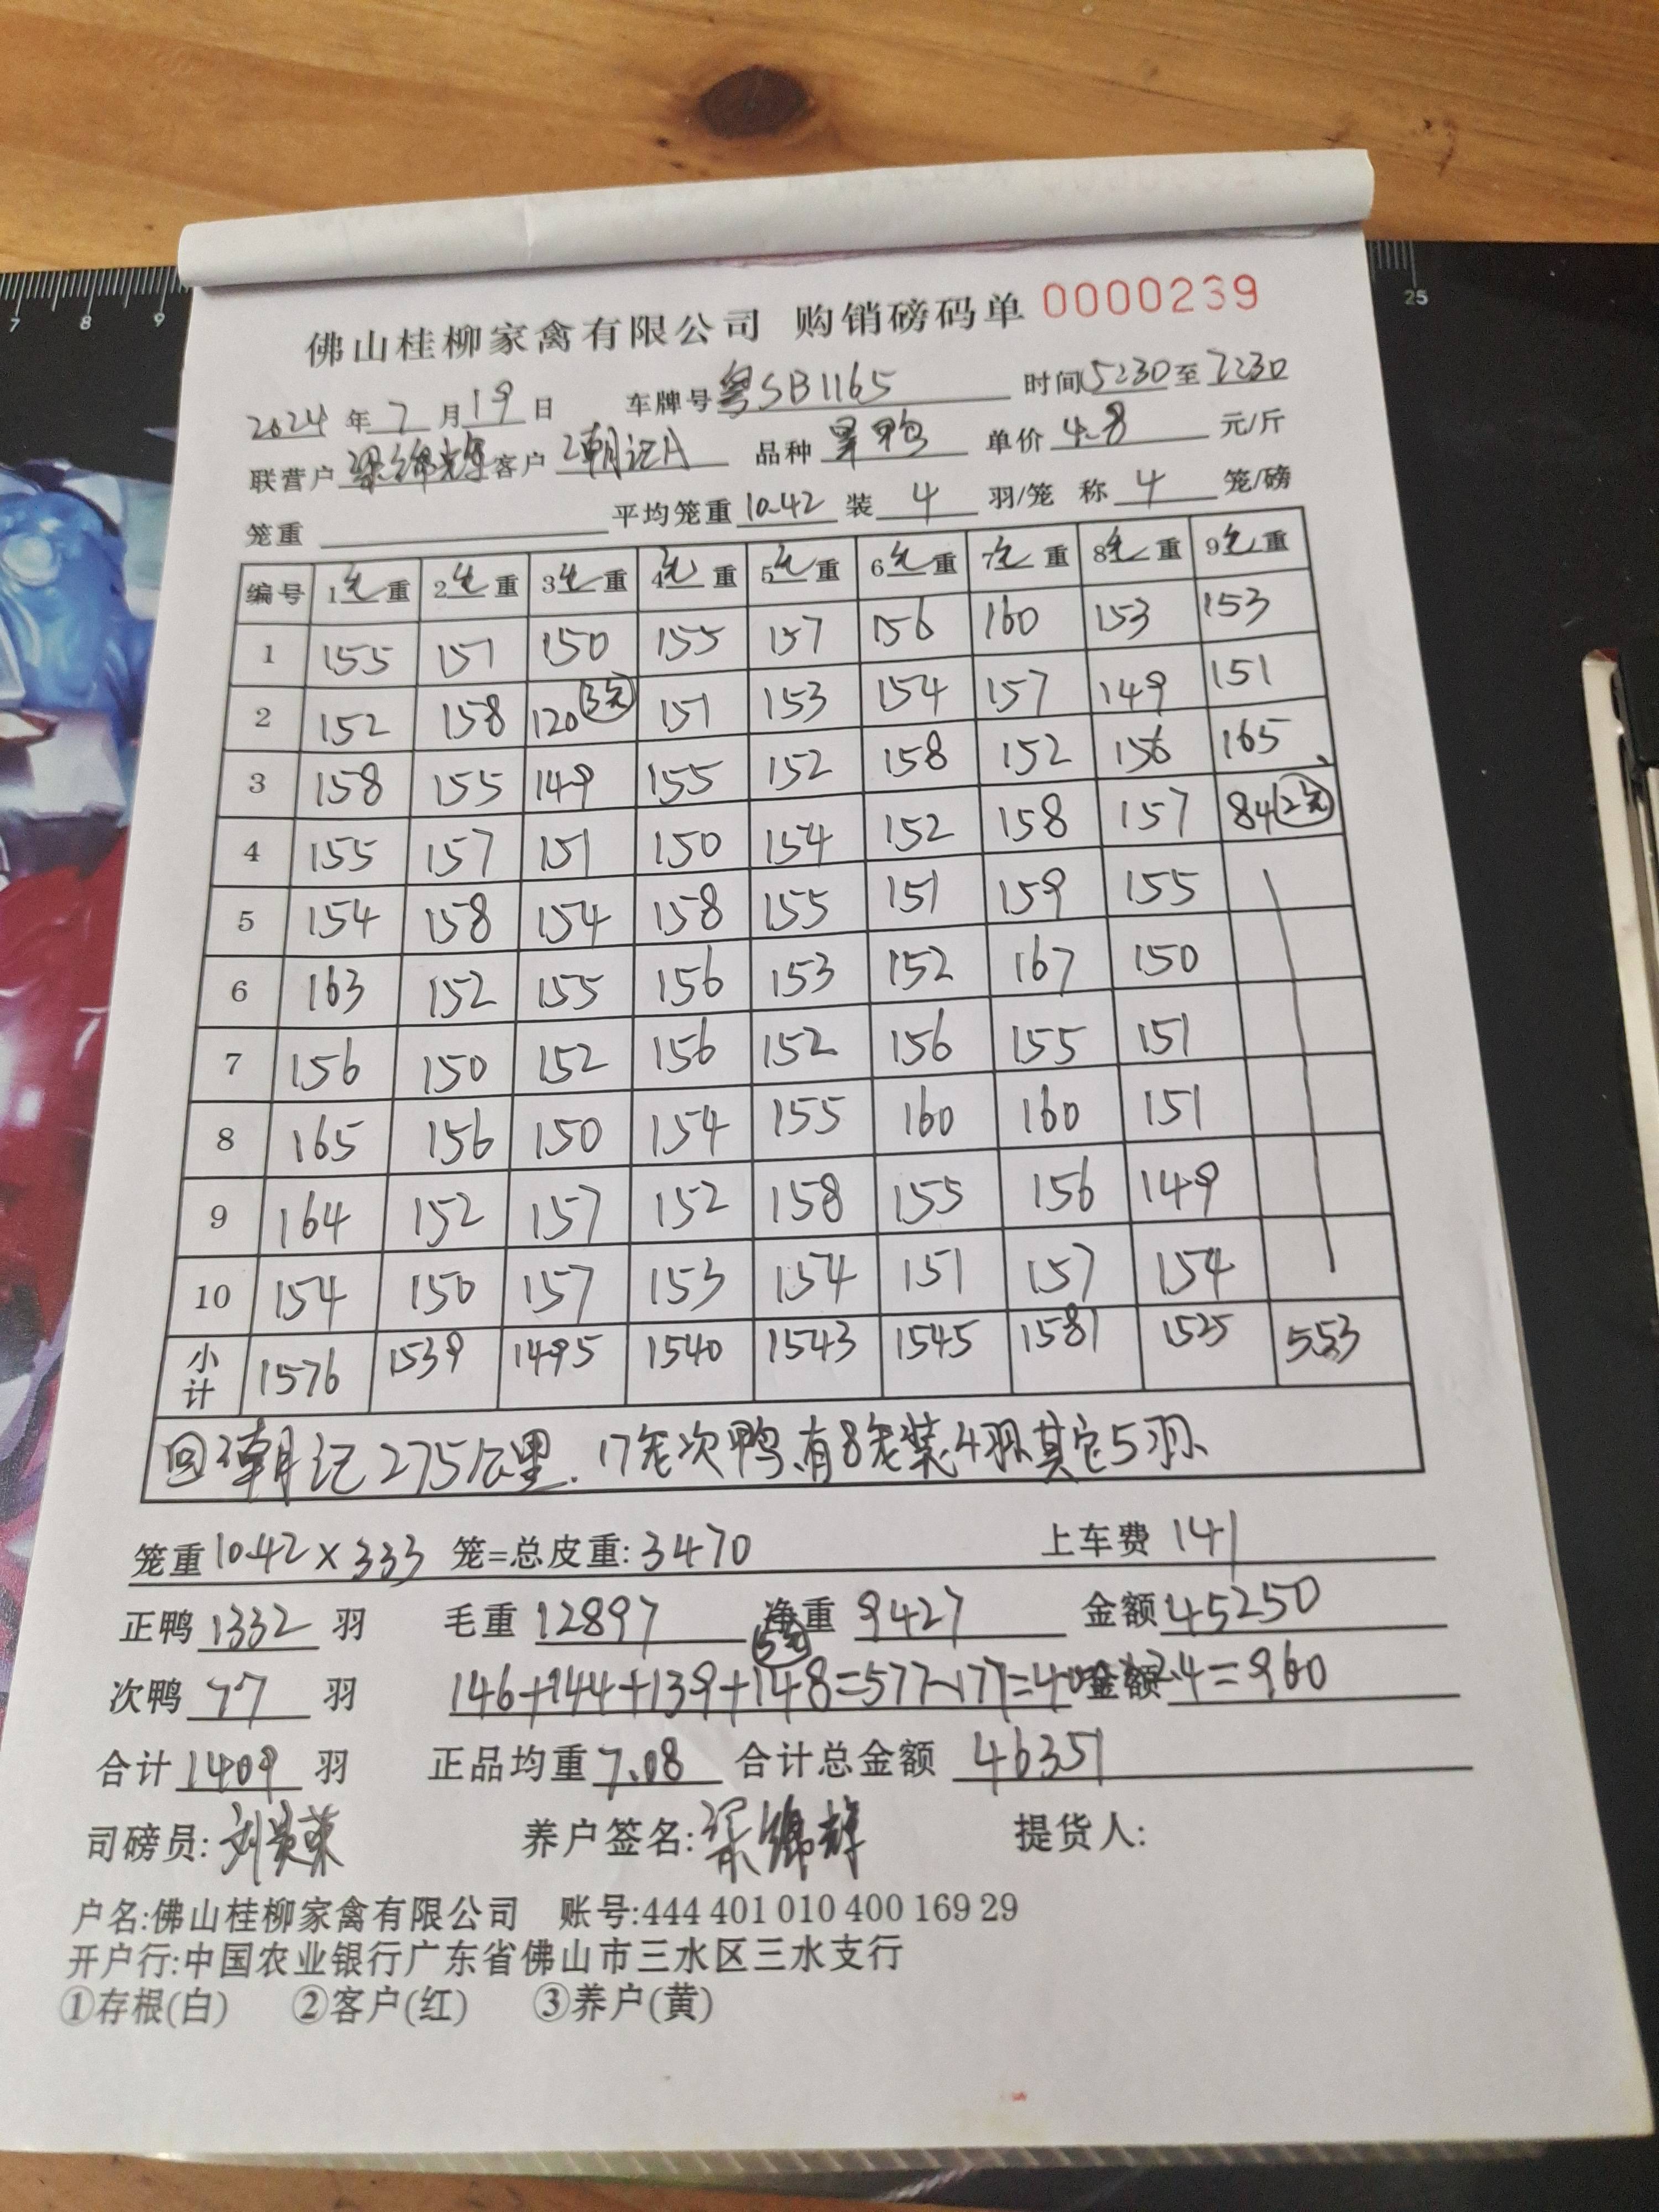 7 8 9 25
佛山桂柳家禽有限公司 购销磅码单 0000239
2024 年 7 月 19 日 车牌号 粤SB1165 时间 5230 至 7230
联营户 梁锦辉 客户 朝记A 品种 单价 4.8 元/斤
笼重 平均笼重 10.42 装 4 羽/笼 称 4 笼/磅
编号 1毛重 2毛重 3毛重 4毛重 5毛重 6毛重 7毛重 8毛重 9毛重
1 155 157 150 155 157 156 160 153 153
2 152 158 120 151 153 154 157 149 151
3 158 155 149 155 152 158 152 156 165
4 155 157 151 150 154 152 158 157 84
5 154 158 154 158 155 151 159 155
6 163 152 155 156 153 152 167 150
7 156 150 152 156 152 156 155 151
8 165 156 150 154 155 160 160 151
9 164 152 157 152 158 155 156 149
10 154 150 157 153 154 151 157 154
小计 1576 1539 1495 1540 1543 1545 1581 1525 553
回朝记275公里.17笼次鸭,有8笼装4羽其它5羽.
笼重 10.42×333 笼=总皮重: 3470 上车费 141
正鸭 1332 羽 毛重 12897 净重 9427 金额 45250
次鸭 77 羽 146+144+139+148=577-177=400 金额 ×2.4=960
合计 1409 羽 正品均重 7.08 合计总金额 46351
司磅员: 养户签名: 梁锦辉 提货人:
户名:佛山桂柳家禽有限公司 账号:444 401 010 400 169 29
开户行:中国农业银行广东省佛山市三水区三水支行
①存根(白) ②客户(红) ③养户(黄)